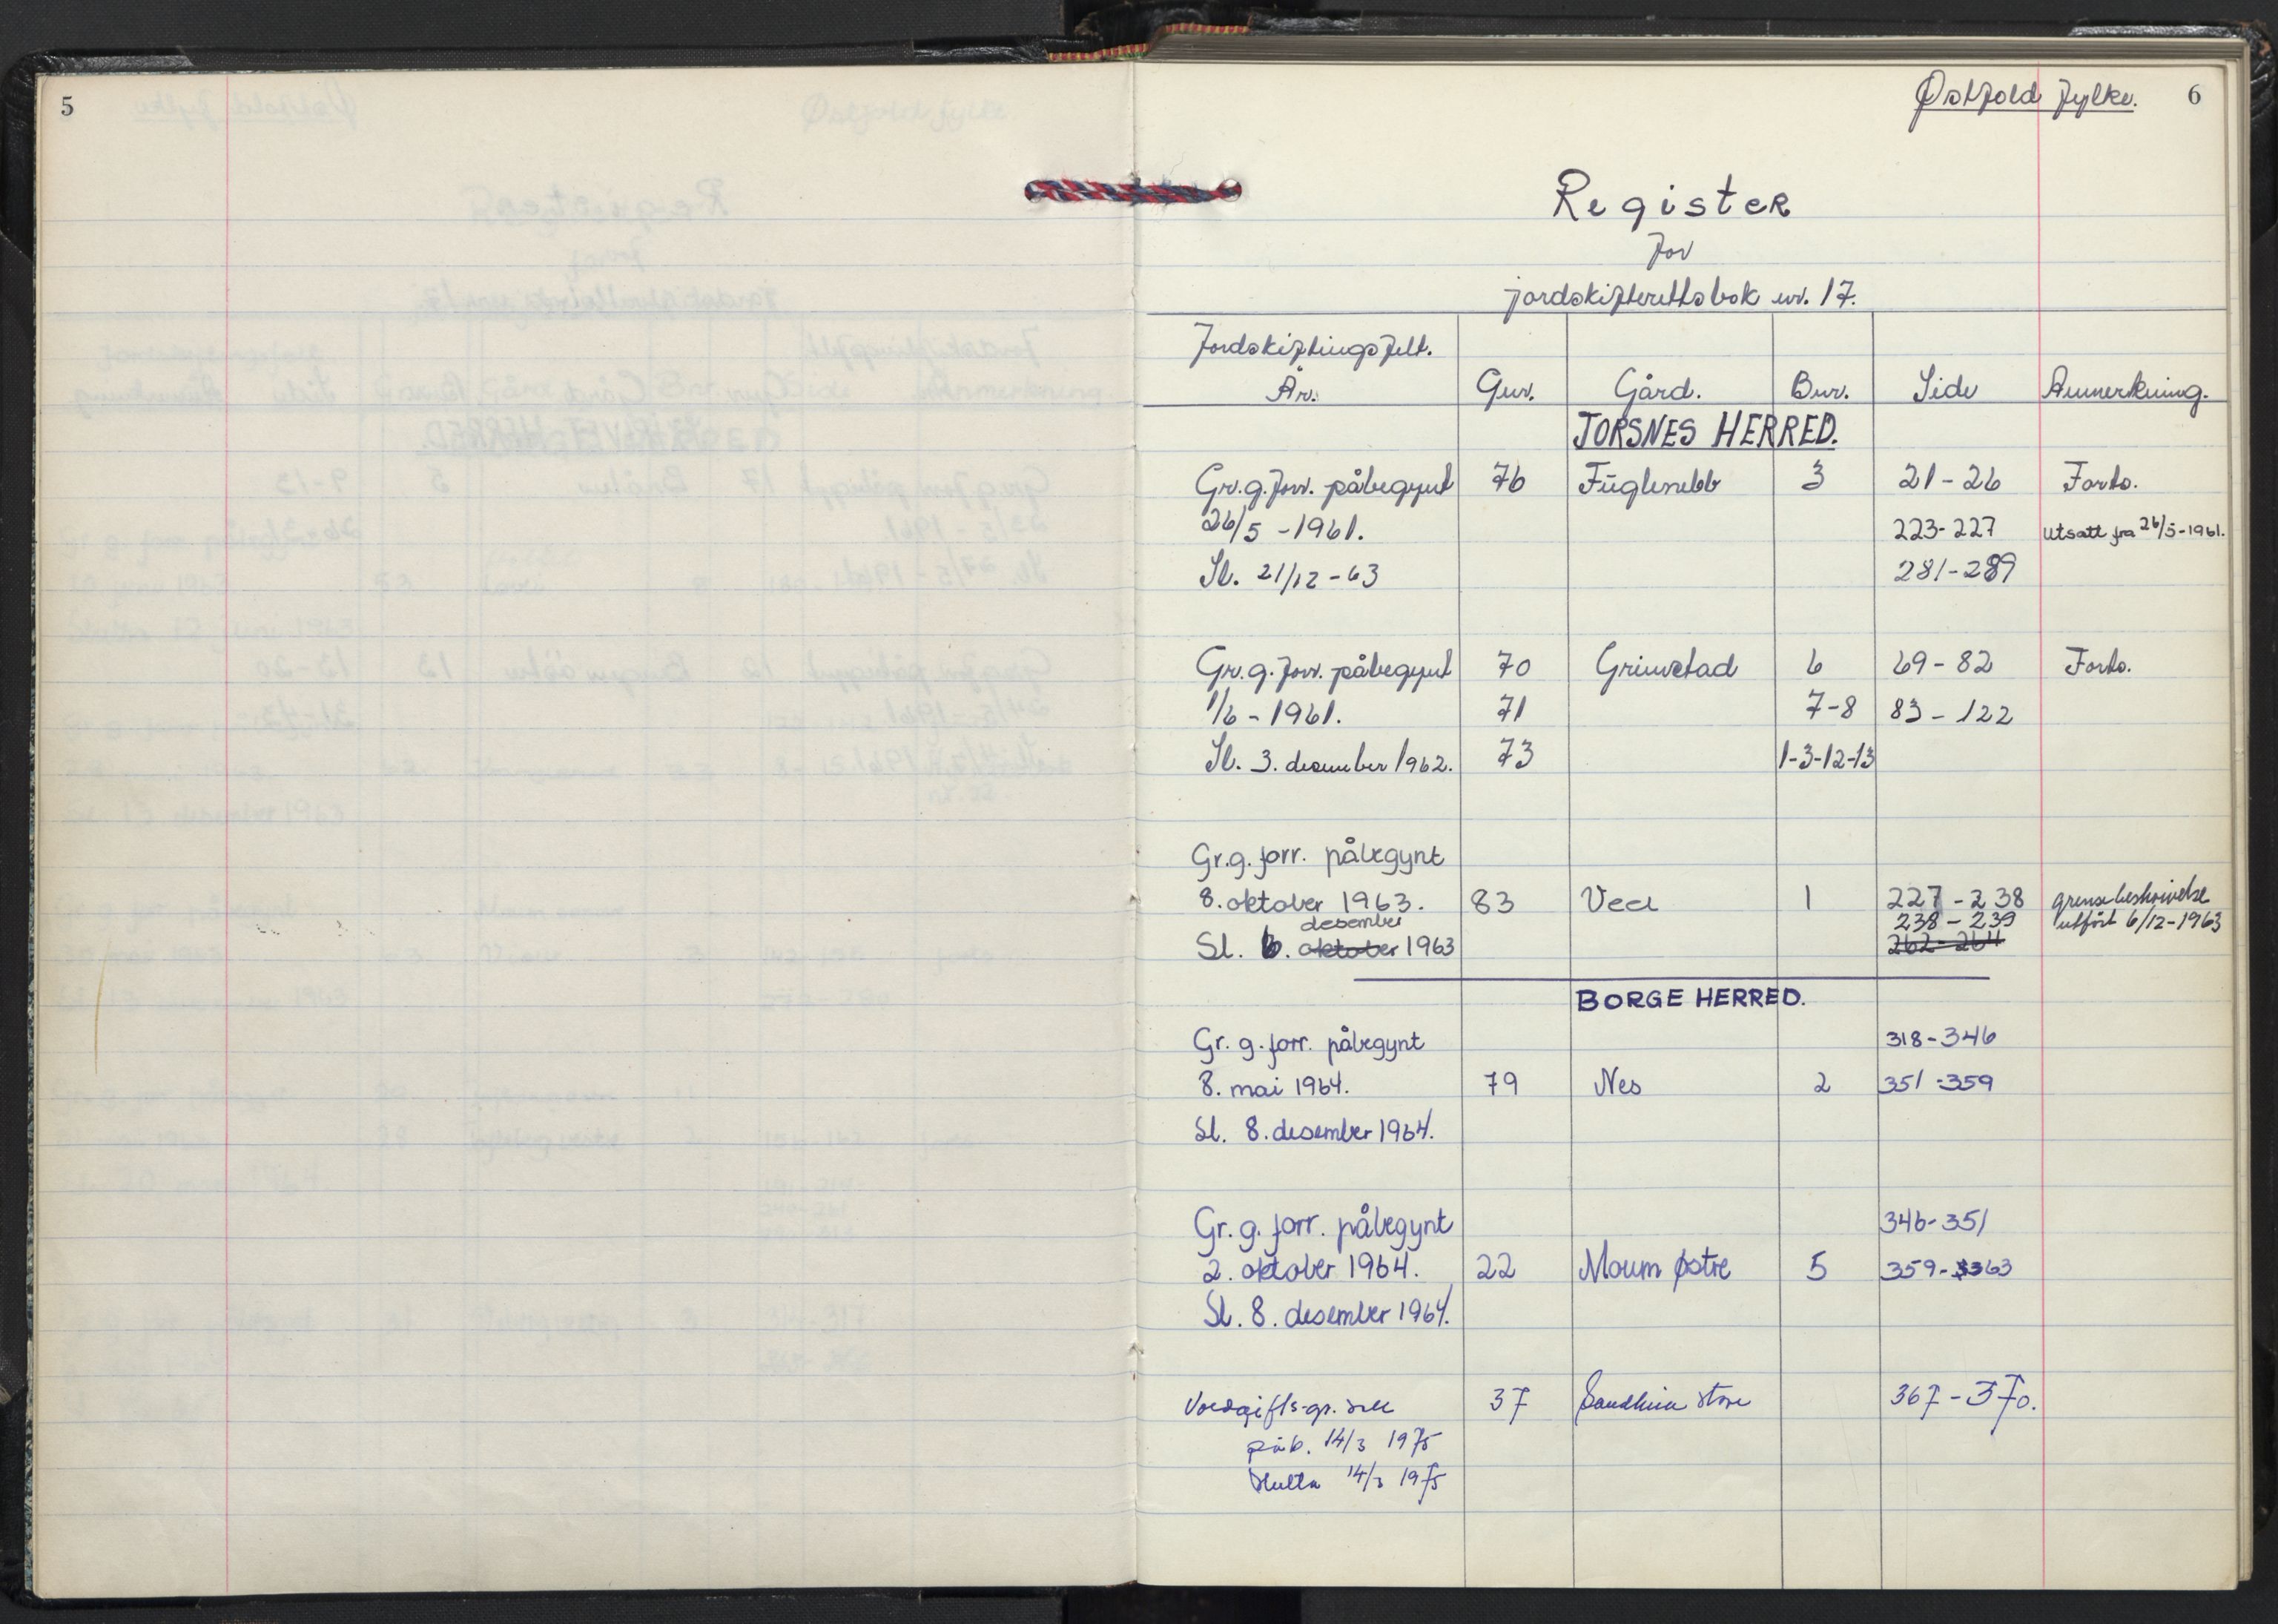 5
Østfold fylke. 6
Register
for
jordskifterettsbok nr. 17.
Jordskiftingsfelt.
År. Gnr. Gård. Bnr. Side Anmerkning.
TORSNES HERRED.
Gr.g.forr. påbegynt 76 Fuglenebb 3 21-26 Forts.
26/5 -1961. 223-227 Utsatt fra 26/5-1961.
Sl. 21/12-63 281-289
Gr.g.forr. påbegynt 70 Grimstad 6 69-82 Forts.
1/6 - 1961. 71 7-8 83-122
Sl. 3. desember 1962. 73 1-3-12-13
Gr.g. forr. påbegynt
8. oktober 1963. 83 Veel 1 227-238 grensebeskrivelse
desember 238-239 utført 6/12-1963
Sl. 6. oktober 1963 262-264
BORGE HERRED.
Gr. g. forr. påbegynt 318-346
8. mai 1964. 79 Nes 2 351-359
Sl. 8. desember 1964.
Gr. g. forr. påbegynt 346-351
2. oktober 1964. 22 Moum østre 5 359-363
Sl. 8. desember 1964.
37 367-370.
påb. 14/3 1975
Slutta 14/3 1975